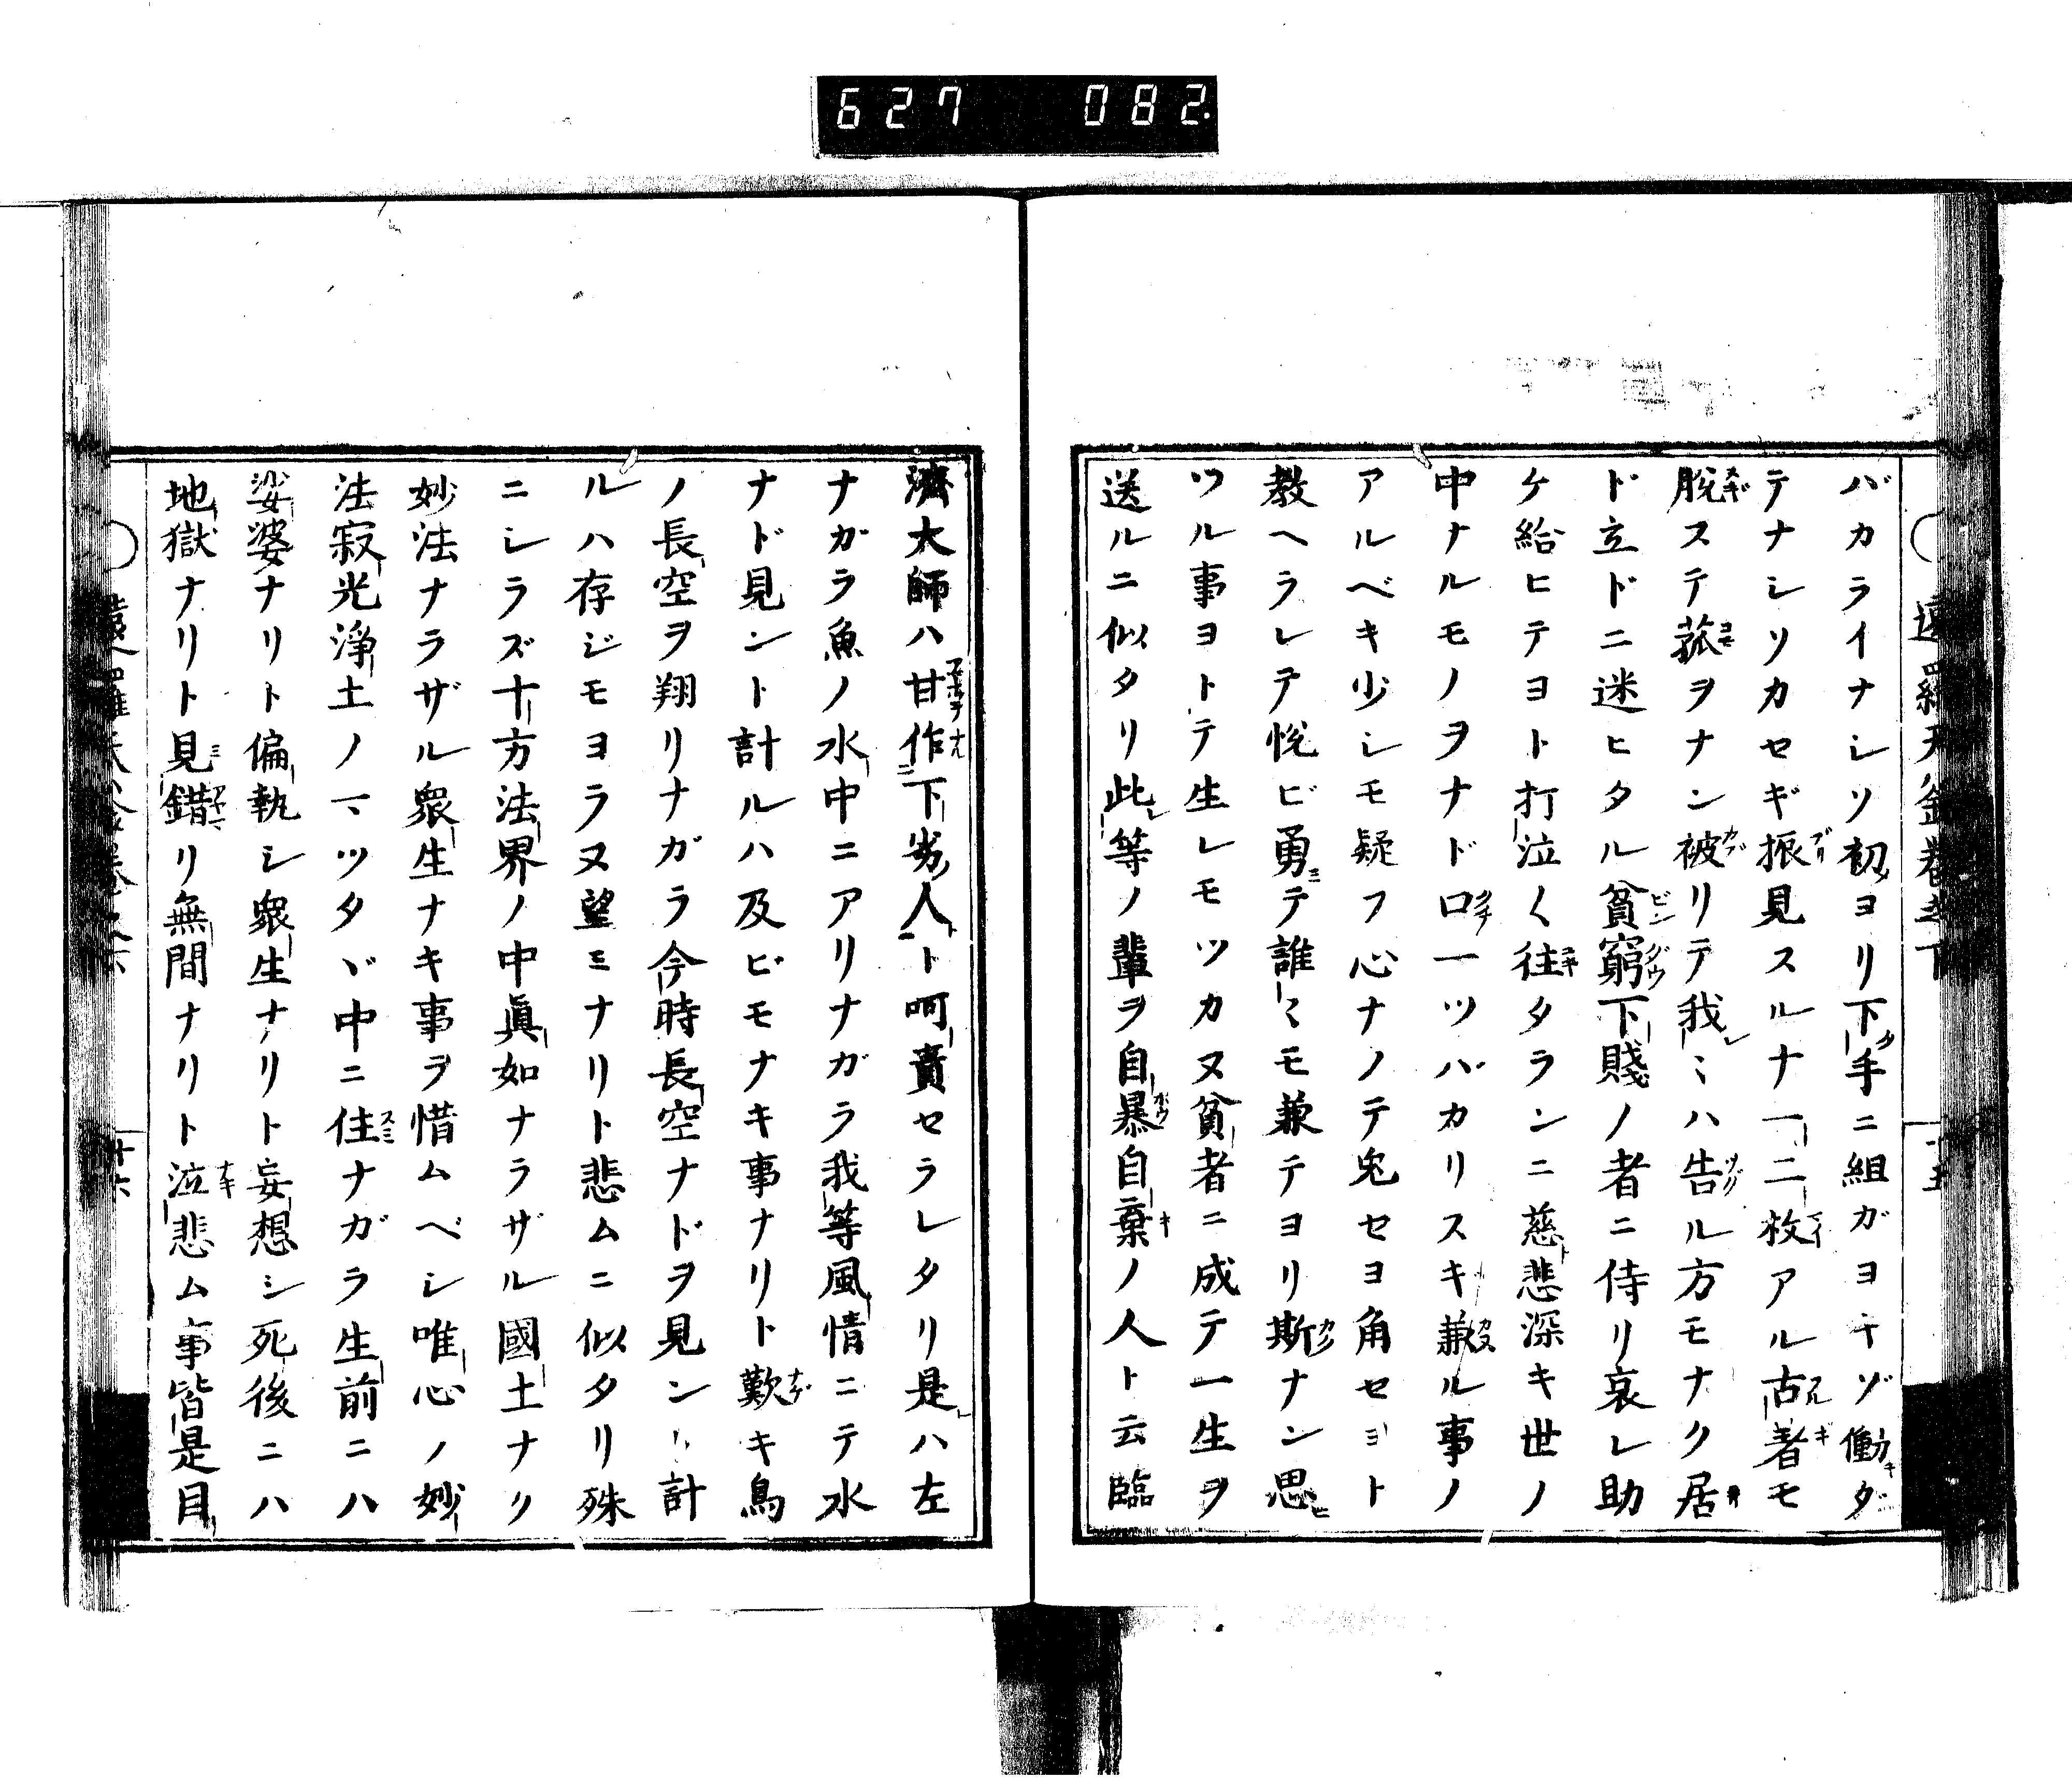 627 082
バカライナシソ初ヨリ下手ニ組ガヨキゾ働ダ
テナシソカセギ振見スルナ一二枚アル古著モ
脱ステ菰ヲナン被リテ我ミハ告ル方モナク居
ド立ドニ迷ヒタル貧窮下賤ノ者ニ侍リ哀レ助
ケ給ヒテヨト打泣く往タランニ慈悲深キ世ノ
中ナルモノヲナド口一ツバカリスキ兼ル事ノ
アルベキ少シモ疑フ心ナノテ兎セヨ角セヨト
教ヘラレテ悦ビ勇テ誰ミモ兼テヨリ斯ナン思
ツル事ヨトテ生レモツカヌ貧者ニ成テ一生ヲ
送ルニ似タリ此等ノ輩ヲ自暴自棄ノ人ト云臨
濟大師ハ甘作下劣人ト呵責セラレタリ是ハ左
ナガラ魚ノ水中ニアリナガラ我等風情ニテ水
ナド見ント計ルハ及ビモナキ事ナリト歎キ鳥
ノ長空ヲ翔リナガラ今時長空ナドヲ見ント計
ルハ存ジモヨラヌ望ミナリト悲ムニ似タリ殊
ニシラズ十方法界ノ中眞如ナラザル國土ナク
妙法ナラザル衆生ナキ事ヲ惜ムベシ唯心ノ妙
法寂光淨土ノマツタヾ中ニ住ナガラ生前ニハ
娑婆ナリト偏執シ衆生ナリト妄想シ死後ニハ
地獄ナリト見錯リ無間ナリト泣悲ム事皆是目
十六